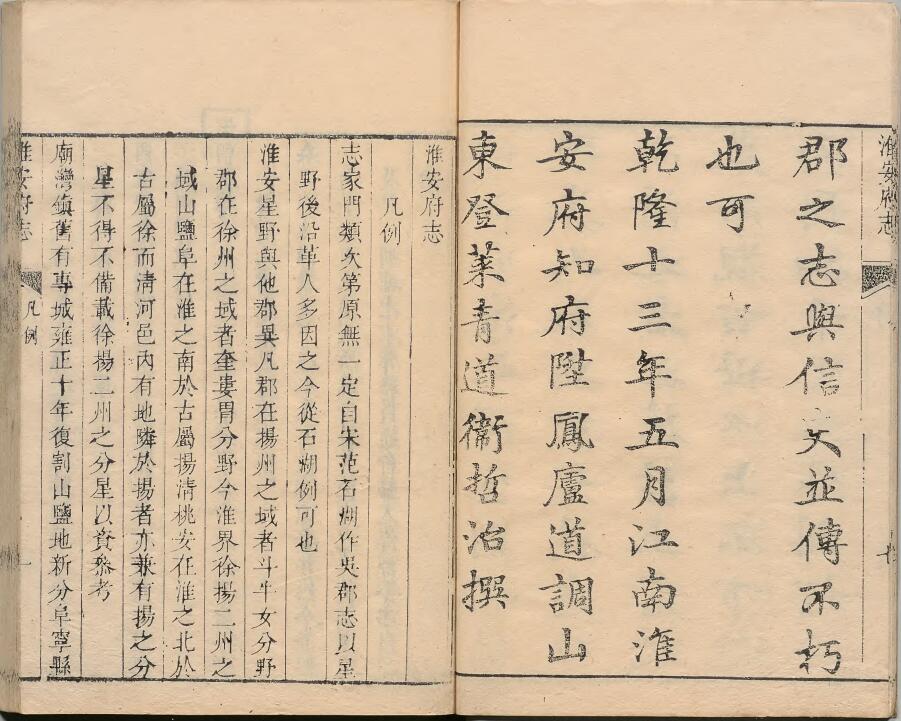 淮安府志
郡之志與信文並傳不朽
也可
乾隆十三年五月江南淮
安府知府陞鳳廬道調山
東登萊青道衞哲治撰
淮安府志
凡例
志家門類次第原無一定自宋范石湖作吳郡志以星
野後沿革人多因之今從石湖例可也
淮安星野與他郡異凡郡在揚州之域者斗牛女分野
郡在徐州之域者奎婁胃分野今淮界徐揚二州之
域山鹽阜在淮之南於古屬揚清桃安在淮之北於
古屬徐而清河邑內有地隣於揚者亦兼有揚之分
星不得不備載徐揚二州之分星以資叅考
廟灣鎮舊有專城雍正十年復割山鹽地新分阜寧縣
淮安府志
凡例
一